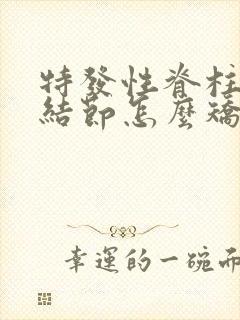 特發性脊柱
結節怎麼矯
幸運的一碗面